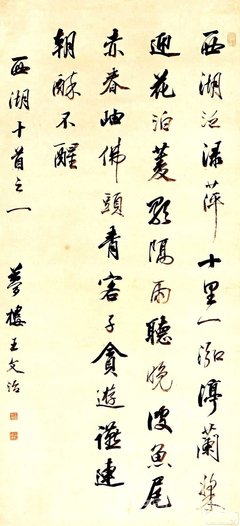 西湖泛綠萍十里一泓渟蘭槳
迎花泊菱歌隔雨聽晚波魚尾
赤春岫佛頭青客子貪遊讌連
朝醉不醒
西湖十首之一
夢樓王文治